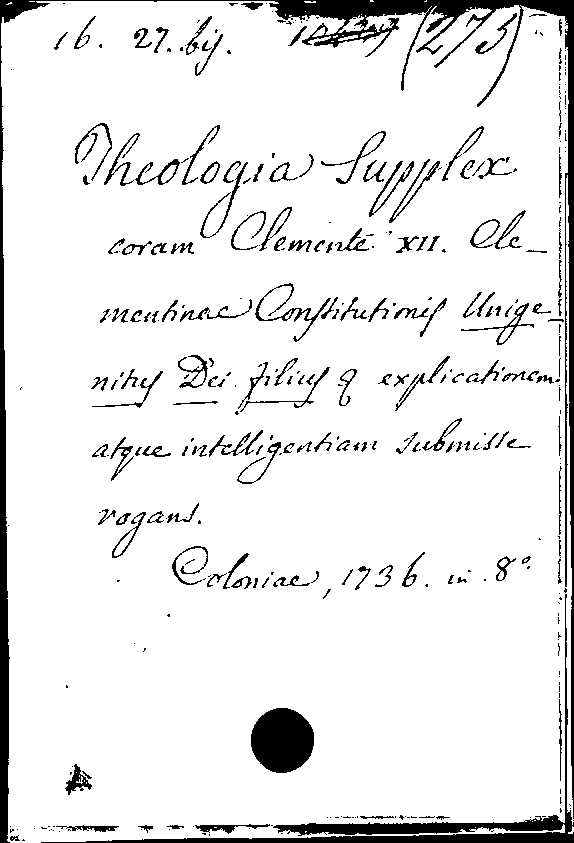 16. 27. bis. (275)
Theologia Supplex
coram Clemente XII. Cle-
mentinae Constitutionis Unige-
nitus Dei filius & explicationem
atque intelligentiam submisse
rogans.
Coloniae, 1736. in 8°.